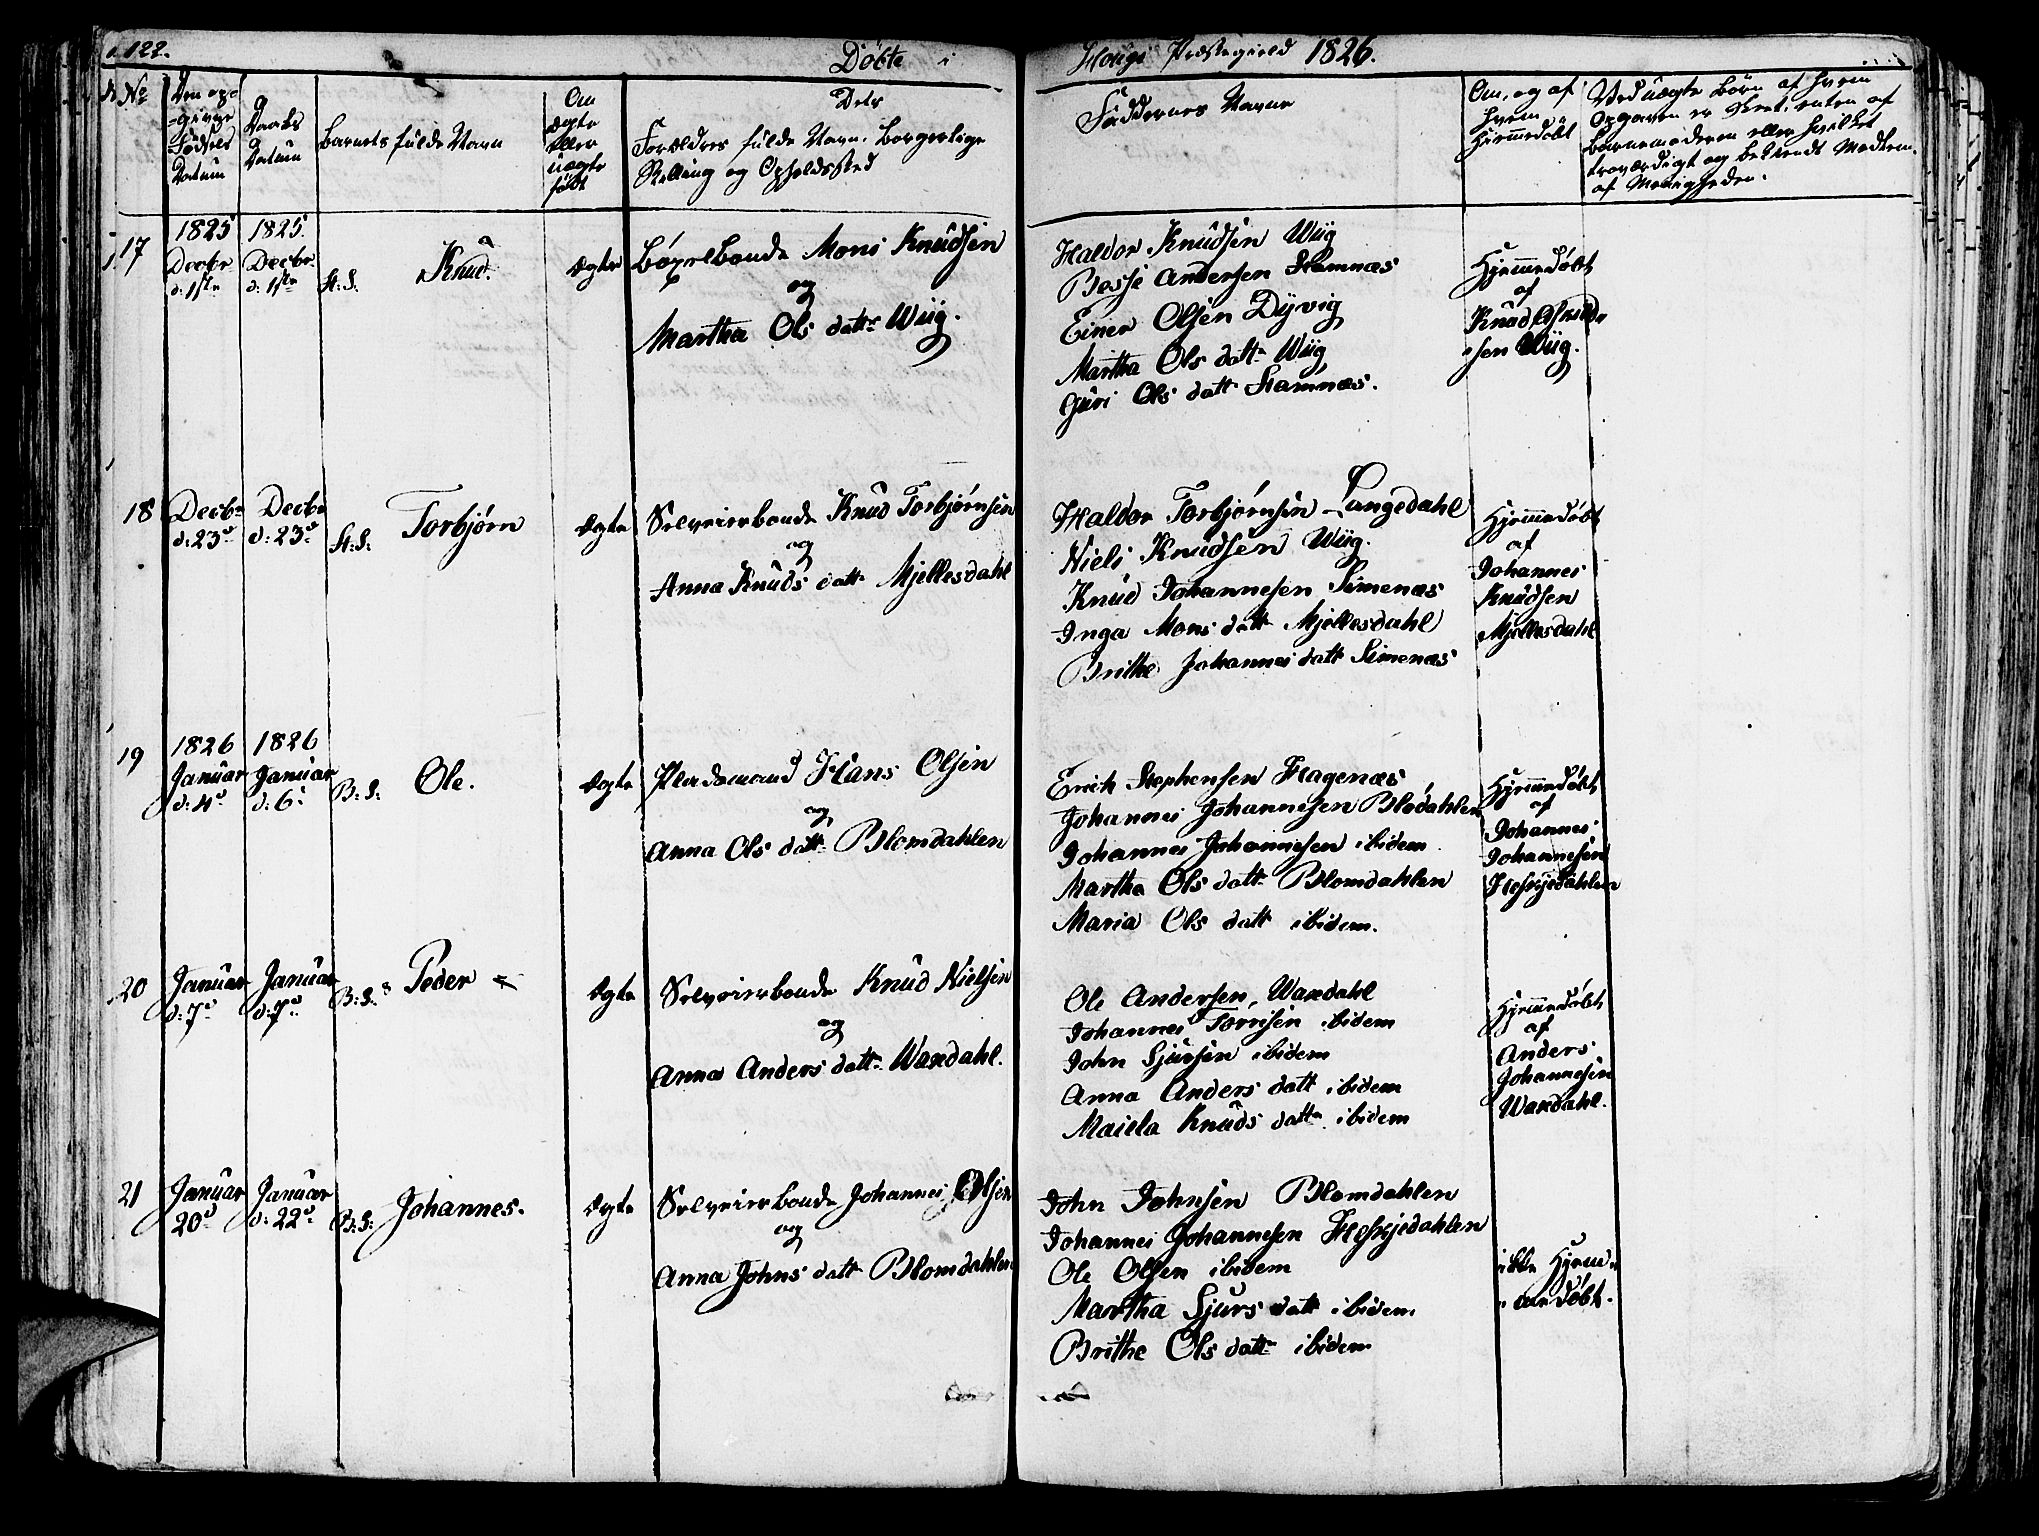 122.
Døbte i
Hougs Præstegield 1826.
No
Den op-
-givne
Fødsels
Datum
Daabs
Datum
Barnets fulde Navn
Om
ægte
eller
uægte
født
Dets
Forældres fulde Navn, borgerlige
Stilling og Opholdssted
Faddernes Navne
Om, og af
hvem
hjemmedøbt
Ved uægte Børn af hvem
Opgaven er skeet, enten af
Barnemoderen eller hvilket
troværdigt og bekiendt Medlem
af Menigheden.
17
1825
Decbr
d: 1ste
1825.
Decbr.
d: 1ste
St: S:
Knud.
ægte
Bøxelbonde Mons Knudsen
og
Martha Ols datt: Wiig.
Haldor Knudsen Wiig
Besse Andersen Stamnæs
Einer Olsen Dyvig
Martha Ols datt: Wiig
Guri Ols datt Stamnæs.
Hjemmedøbt
af
Knud
-sen Wiig.
18
Decbr
d: 23d
Decbr
d: 23d
St: S:
Torbjørn
ægte
Selveierbonde Knud Torbjørnsen
og
Anna Knuds datt: Mjellesdahl
Haldor Torbjørnsen Langedahl
Niels Knudsen Wiig.
Knud Johannesen Simenæs
Inga Mons datt: Mjellesdahl
Brithe Johannes datt Simenæs
Hjemmedøbt
af
Johannes
Knudsen
Mjellesdahl
19
1826
Januar
d: 4d
1826
Januar
d: 6:
B: S:
Ole.
ægte
Pladsmand Hans Olsen
og
Anna Ols datt: Blomdahlen
Erich Stephensen Hagenæs
Johannes Johannesen Blodahlen
Johannes Johannesen ibidem
Martha Ols datt: Blomdahlen
Maria Ols datt ibidem.
Hjemmedøbt
af
Johannes
Johannesen
Hesjedahlen
20
Januar
d: 7d
Januar
d: 7d
B: S:
Peder
ægte
Selveierbonde Knud Nielsen
og
Anna Anders datt: Waxdahl.
Ole Andersen, Waxdahl
Johannes Torrisen ibidem
John Sjursen ibidem
Anna Anders datt ibidem
Maiela Knuds datt: ibidem
Hjemmedøbt
af
Anders
Johannesen
Waxdahl.
21
Januar
20d
Januar
d: 22d
B: S:
Johannes.
ægte
Selveierbonde Johannes Olsen
og
Anna Johns datt Blomdahlen
John Johnsen Blomdahlen
Johannes Johannesen Hesjedahlen
Ole Olsen ibidem
Martha Sjurs datt ibidem
Brithe Ols datt ibidem
ikke Hjem-
-medøbt.